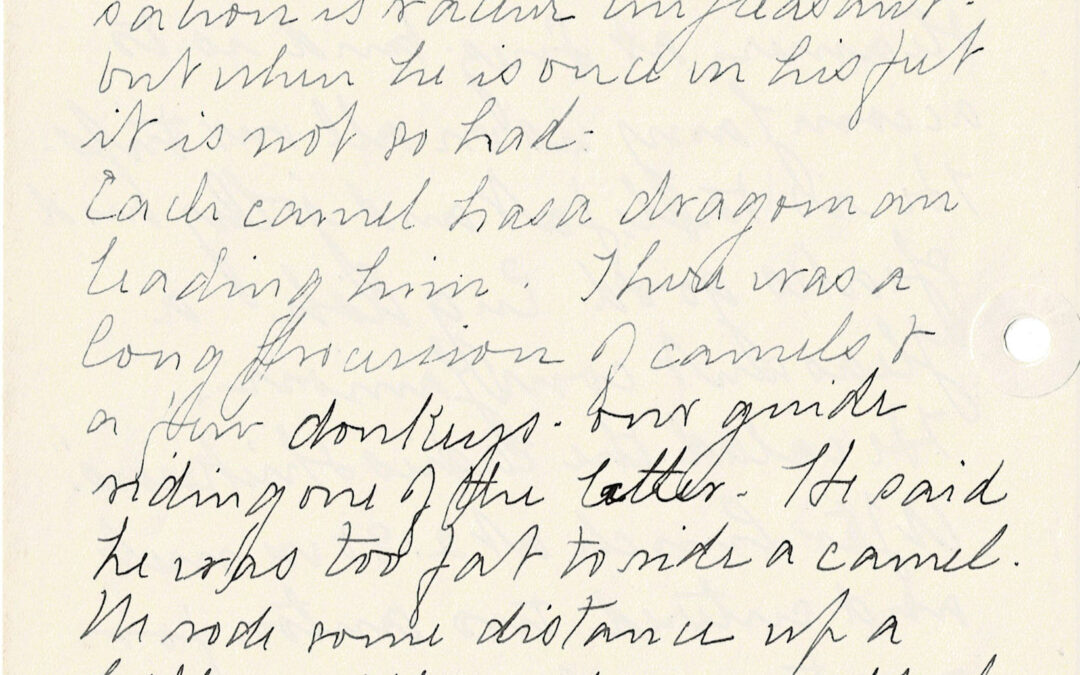 sation is rather unpleasant.
but when he is once on his feet
it is not so bad.
Each camel has a dragoman
leading him. There was a
long procession of camels &
a few donkeys. our guide
riding one of the latter. He said
he was too fat to ride a camel.
We rode some distance up a